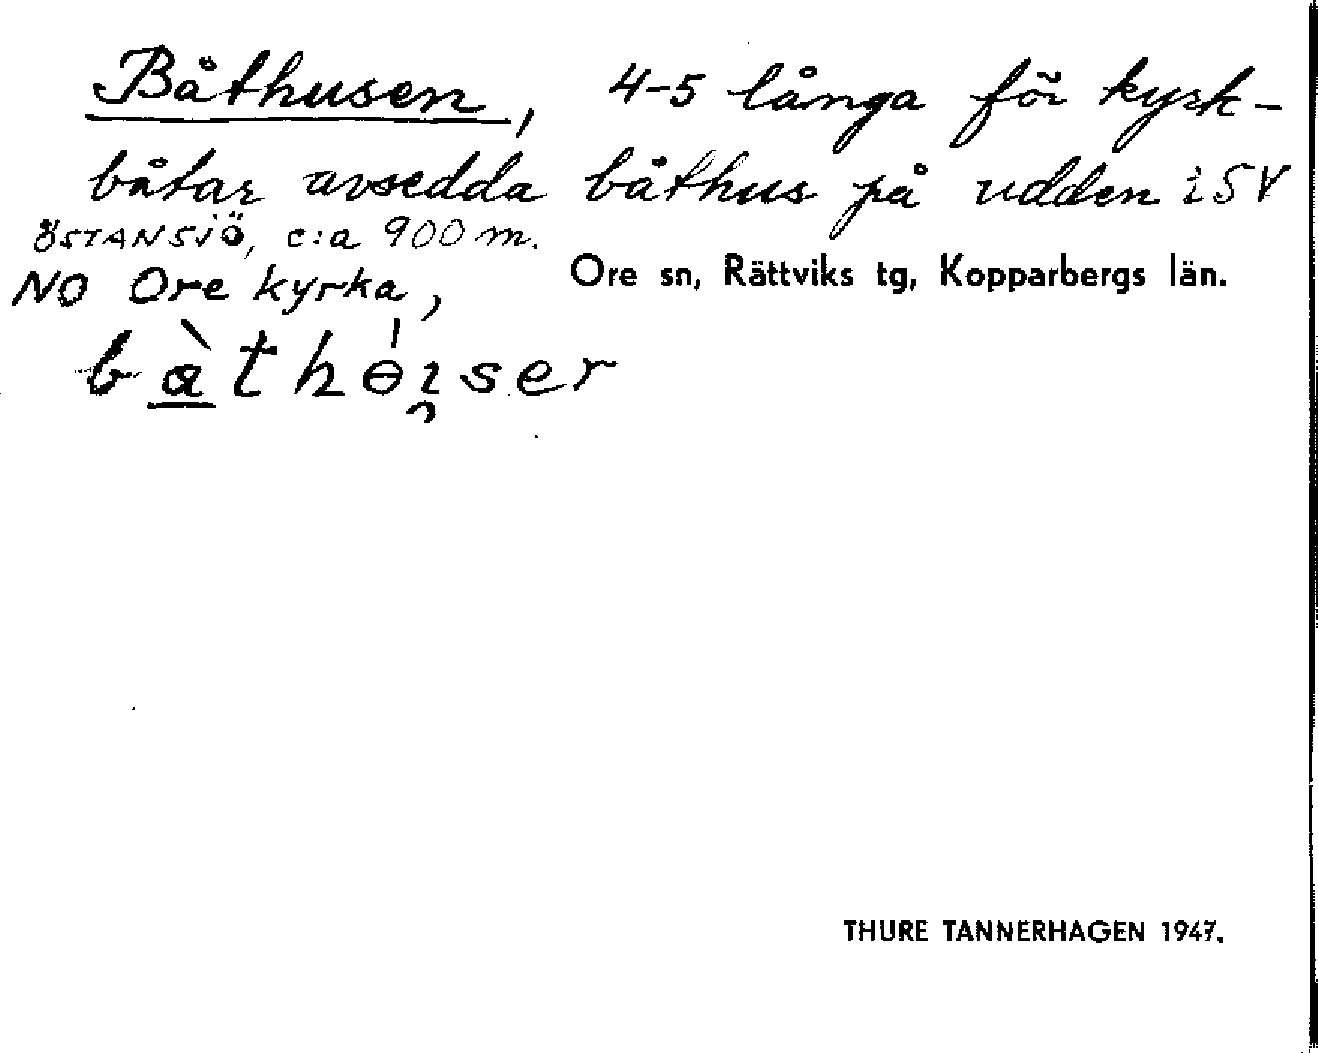 Båthusen, 4-5 långa för kyrk-
båtar avsedda båthus på udden i SV
ÖSTANSJÖ, c:a 900 m.
NO Ore kyrka,
Ore sn, Rättviks tg, Kopparbergs län.
THURE TANNERHAGEN 1947.